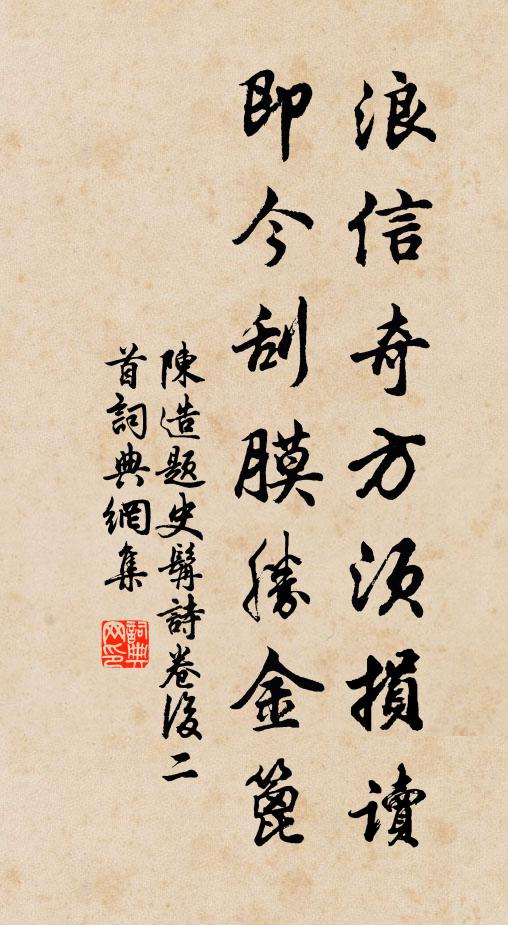 浪信奇方須損讀
即今刮膜勝金篦
陳造題史髯詩卷後二
首詞典網集
詞典網印